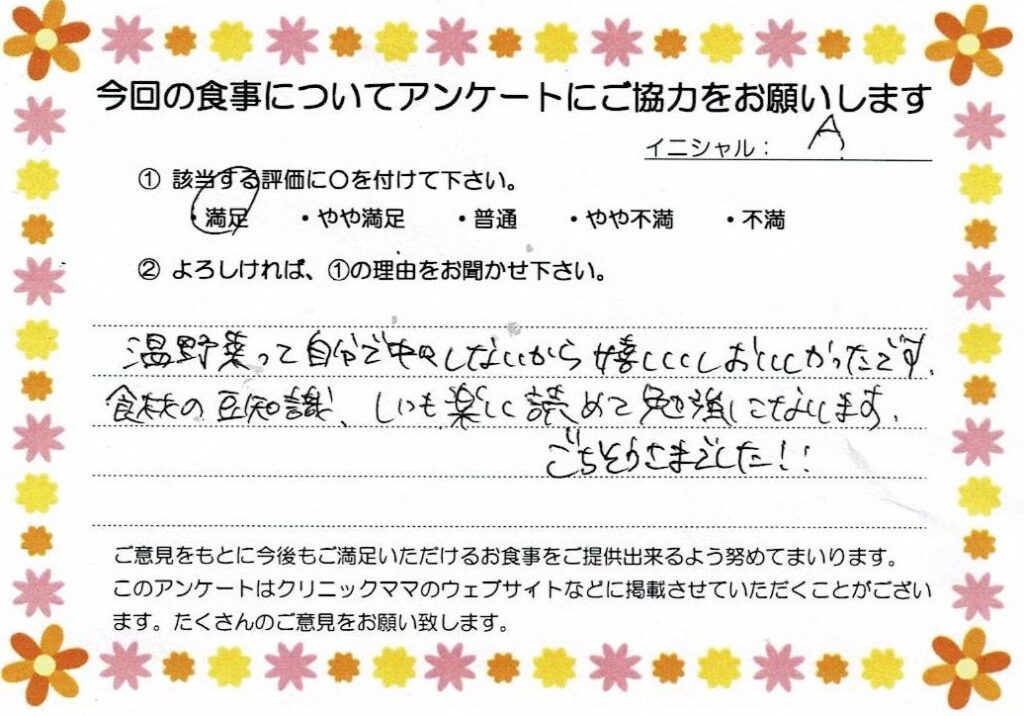 今回の食事についてアンケートにご協力をお願いします
イニシャル： A.
① 該当する評価に〇を付けて下さい。
・満足 ・やや満足 ・普通 ・やや不満 ・不満
② よろしければ、①の理由をお聞かせ下さい。
温野菜って自分で中々しないから嬉しいしおいしかったです。
食材の豆知識、いつも楽しく読めて勉強になります。
ごちそうさまでした!!
ご意見をもとに今後もご満足いただけるお食事をご提供出来るよう努めてまいります。
このアンケートはクリニックママのウェブサイトなどに掲載させていただくことがござい
ます。たくさんのご意見をお願い致します。